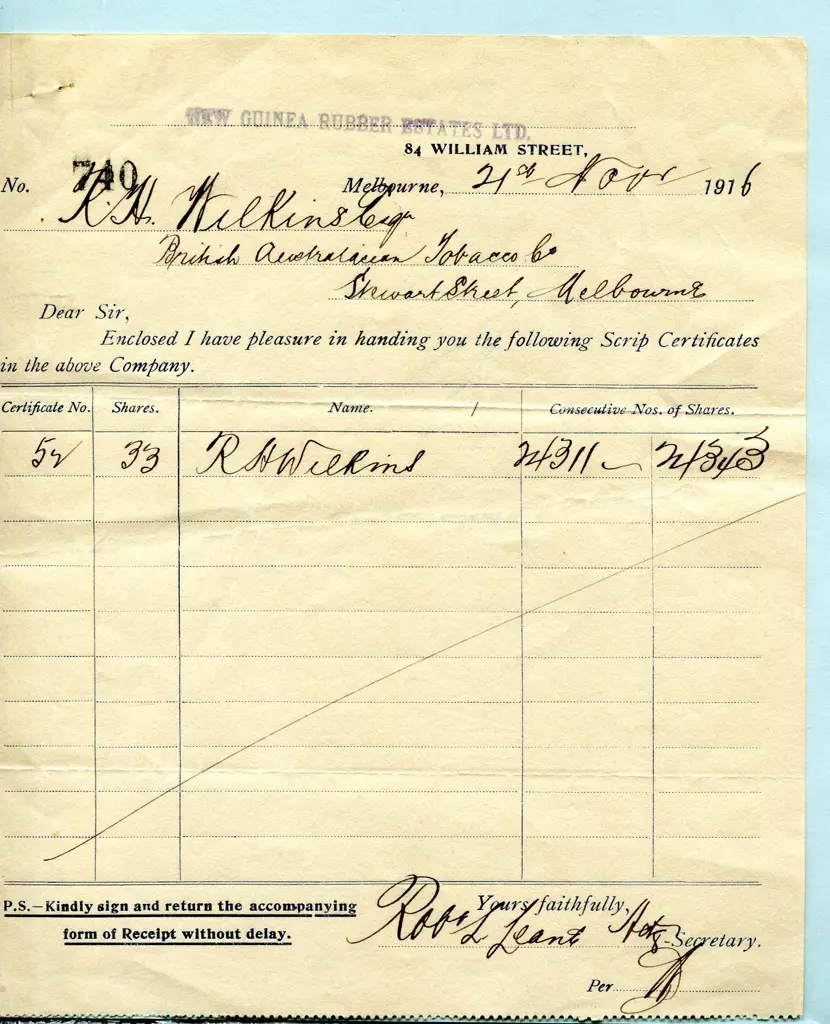 NEW GUINEA RUBBER ESTATES LTD.
84 WILLIAM STREET,
No. 740 Melbourne, 21st Novr 1916
R. H. Wilkins Esqr
British Australasian Tobacco Co
Stewart Street, Melbourne
Dear Sir,
Enclosed I have pleasure in handing you the following Scrip Certificates
in the above Company.
Certificate No. Shares. Name. / Consecutive Nos. of Shares.
52 33 R H Wilkins 24311 — 24343
P.S.—Kindly sign and return the accompanying
form of Receipt without delay.
Yours faithfully,
Robt L Actg Secretary.
Per